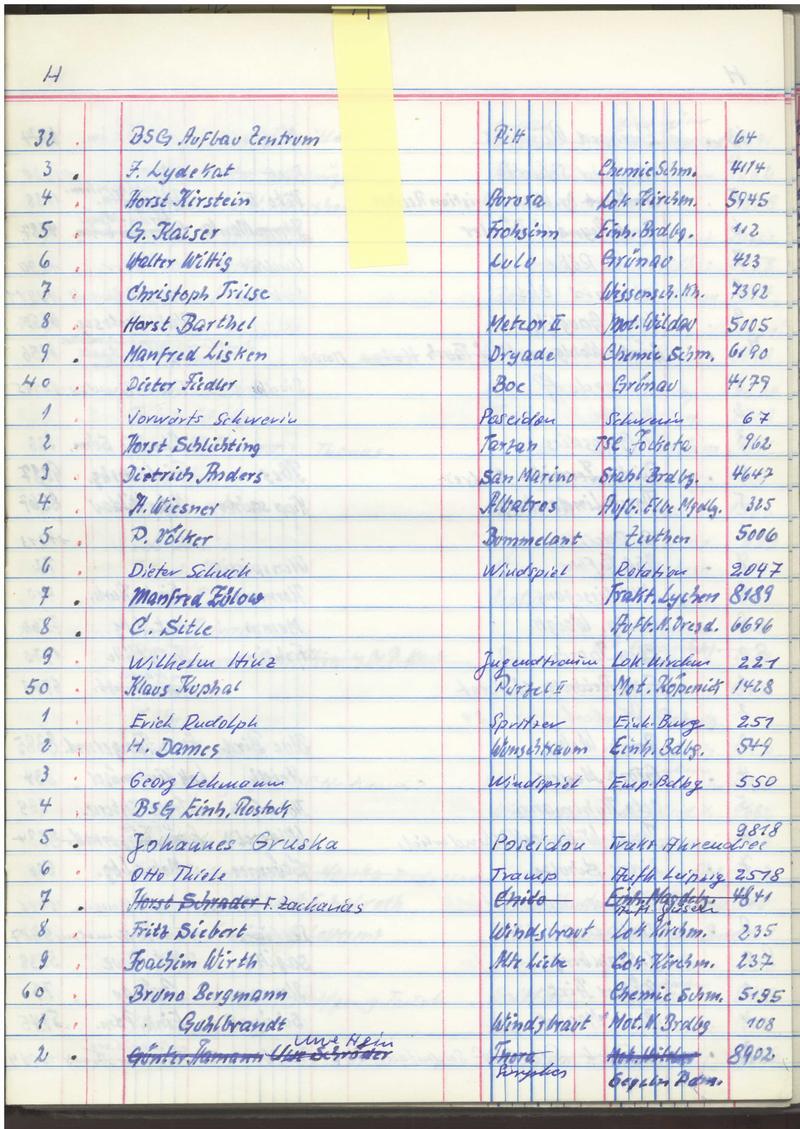 H
32 BSG Aufbau Zentrum Pitt 64
3 . F. Lydekat Chemie Schm. 4114
4 . Horst Kirstein Aurora Lok Kirchm. 5945
5 . G. Kaiser Frohsinn Einh. Brdbg. 112
6 Walter Wittig Lulu Grünau 423
7 . Christoph Trilse Wissensch. Hn. 7392
8 . Horst Barthel Meteor II Mot. Wildau 5005
9 . Manfred Lisken Dryade Chemie Schm. 6190
40 . Dieter Fiedler Boe Grünau 4179
1 . Vorwärts Schwerin Poseidon Schwerin 67
2 . Horst Schlichting Tarzan TSC 962
3 . Dietrich Anders San Marino Stahl Brdbg. 4647
4 . A. Wiesner Albatros Aufb. Elbe Mgdbg. 325
5 . P. Völker Bummelant Zeuthen 5006
6 . Dieter Schuck Windspiel Rotation 2047
7 . Manfred Zülow Trakt. Lychen 8189
8 . C. Sitte Aufb. N. Dresd. 6696
9 . Wilhelm Hinz Jugendtraum Lok Kirchm 221
50 . Klaus Kuphal Purzel II Mot. Köpenick 1428
1 . Erich Rudolph Spritzer Einh. Burg 251
2 . H. Dames Wunschtraum Einh. Bdbg. 549
3 . Georg Lehmann Windspiel Emp. Bdbg 550
4 . BSG Einh. Rostock
5 . Johannes Gruska Poseidon Trakt Ahrendsee 9818
6 . Otto Thiele Tramp Aufb. Leipzig 2518
7 . Horst Schrader F. Zacharias Chito Einh. Magdebg. 4841
8 . Fritz Siebert Windsbraut Lok Kirchm. 235
9 . Joachim Wirth Alte Liebe Lok Kirchm. 237
60 . Bruno Bergmann Chemie Schm. 5195
1 . Guhlbrandt Windsbraut Mot. N. Brdbg 108
Uwe Hein
2 . Günter Uwe Schröder Thora Mot. Wildau 8902
Segeln